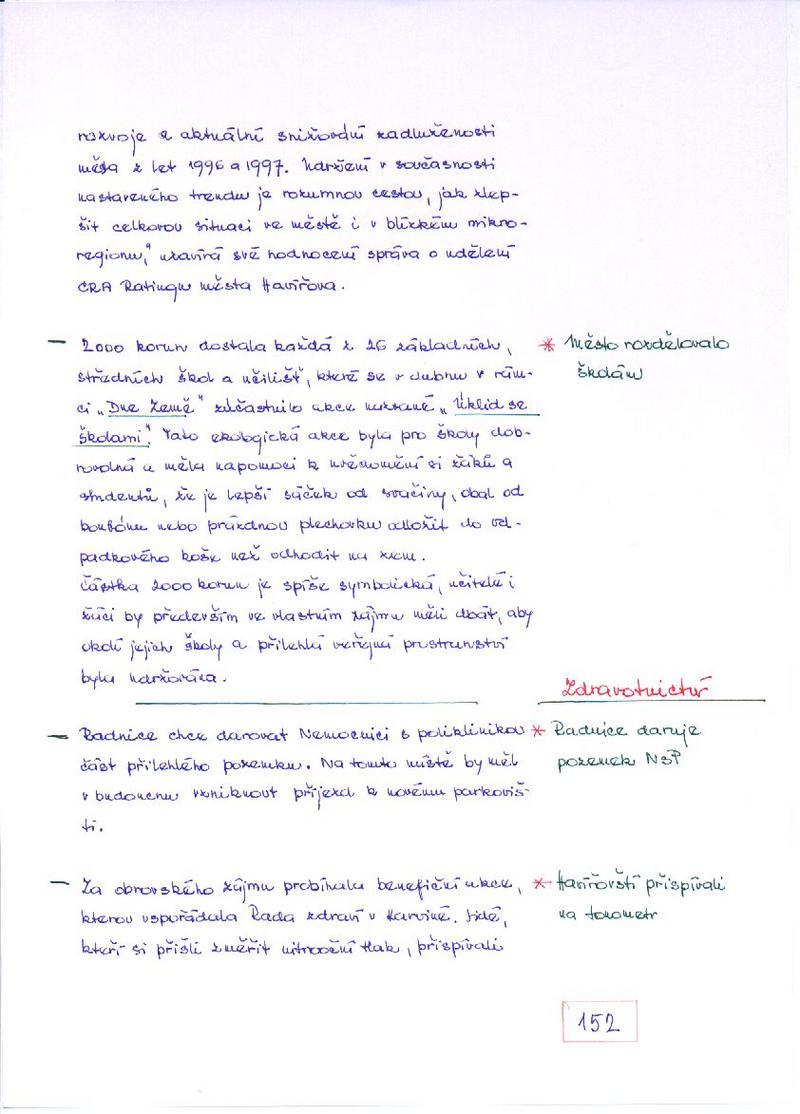 rozvoje a aktuální snižování zadluženosti
města z let 1996 a 1997. Udržení v současnosti
nastaveného trendu je rozumnou cestou, jak zlep-
šit celkovou situaci ve městě i v blízkém mikro-
regionu," uzavírá své hodnocení správa o udělení
CRA Ratingu města Havířova.
– 2000 korun dostala každá z 26 základních,
středních škol a učilišť, které se v dubnu v rám-
ci „Dne Země" zúčastnilo akce nazvané „Úklid se
školami". Tato ekologická akce byla pro školy dob-
rovolná a měla napomoci k uvědomění si žáků a
studentů, že je lepší sáček od svačiny, obal od
bonbónu nebo prázdnou plechovku odložit do od-
padkového koše než odhodit na zem.
Částka 2000 korun je spíše symbolická, učitelé i
žáci by především ve vlastním zájmu měli dbát, aby
okolí jejich školy a přilehlá veřejná prostranství
byla udržována.
* Město rozdělovalo
školám
Zdravotnictví
– Radnice chce darovat Nemocnici s poliklinikou
část přilehlého pozemku. Na tomto místě by měl
v budoucnu vzniknout příjezd k novému parkoviš-
ti.
* Radnice daruje
pozemek NsP
– Za obrovského zájmu probíhala benefiční akce,
kterou uspořádala Rada zdraví v Karviné. Lidé,
kteří si přišli změřit nitrooční tlak, přispívali
* Havířovští přispívali
na tonometr
152